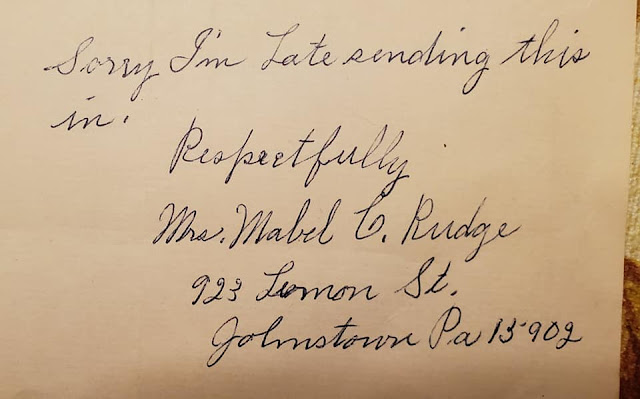 Sorry I'm Late sending this
in.
Respectfully
Mrs. Mabel C. Rudge
923 Lemon St.
Johnstown Pa 15902